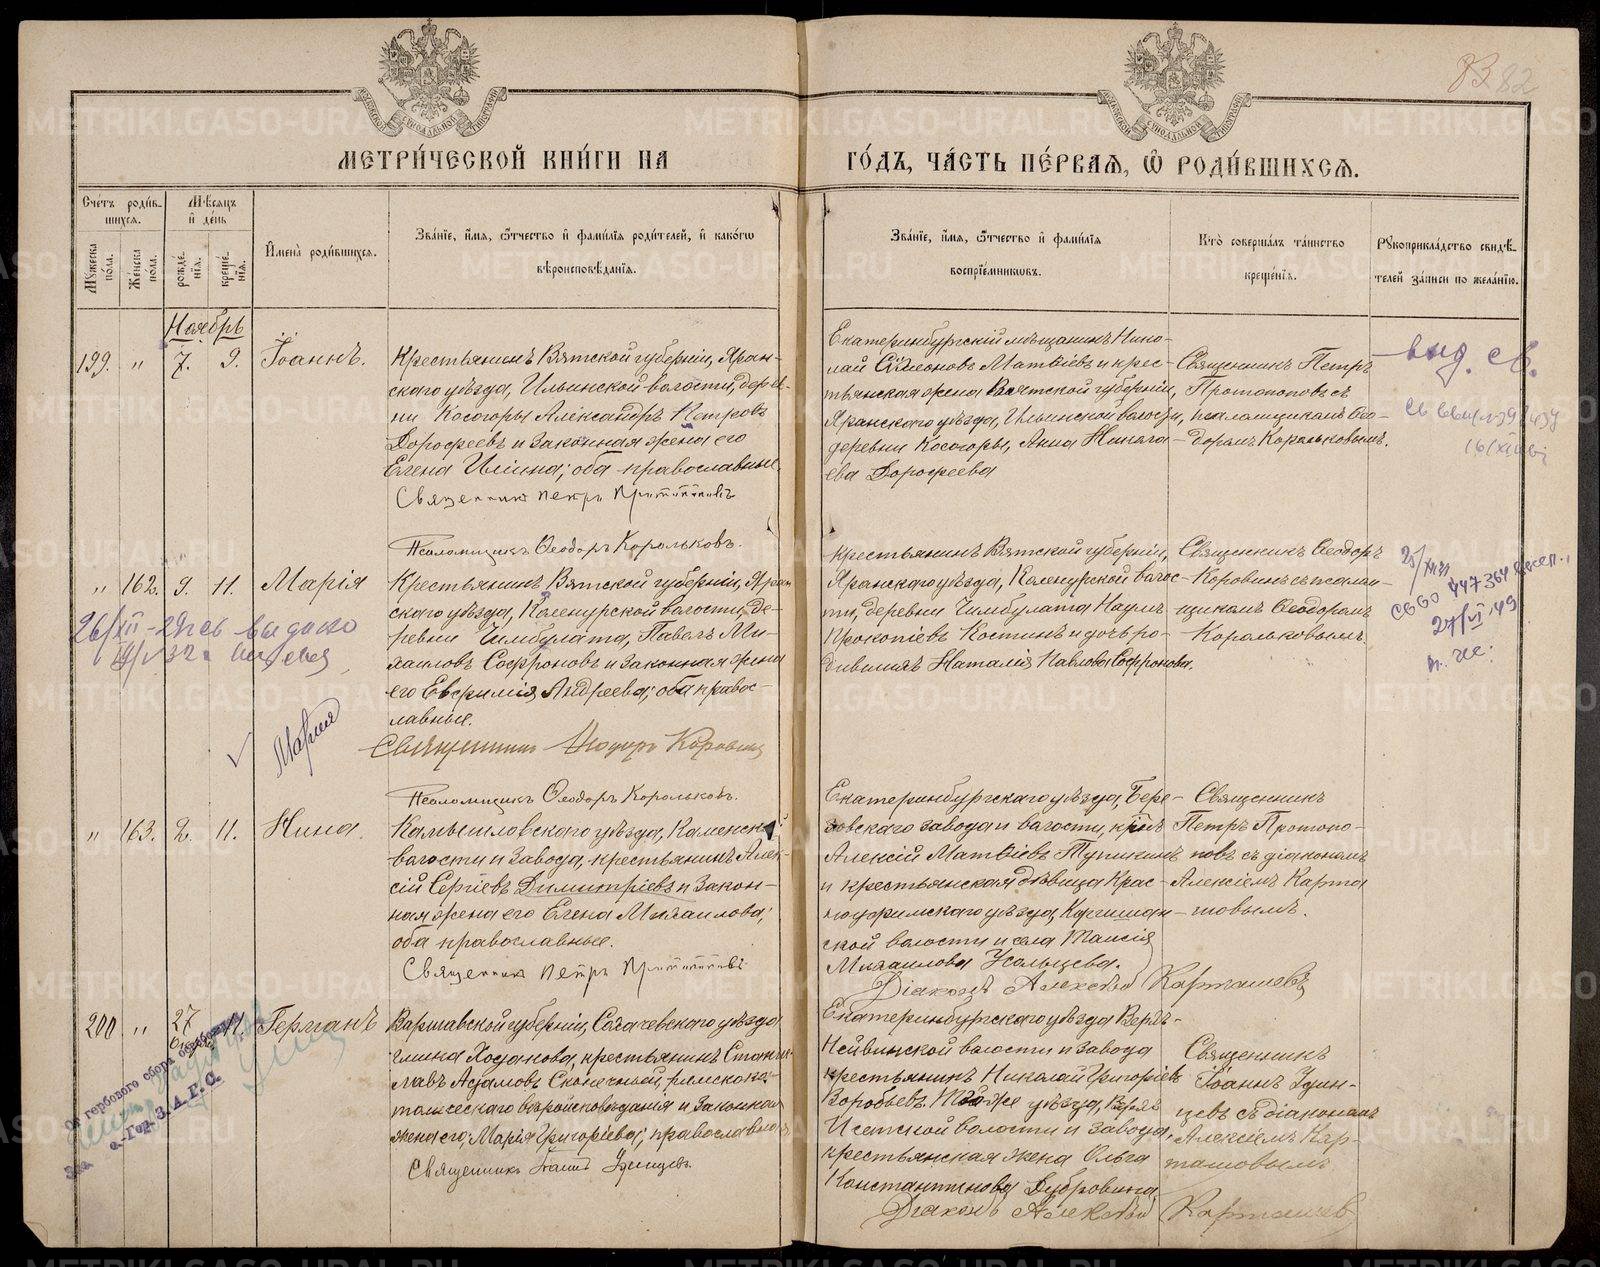 83 82
МЕТРИ́ЧЕСКОЙ КНИ́ГИ НА
ГО́ДЪ, ЧА́СТЬ ПЕ́РВАѦ, Ѽ РОДИ́ВШИХСѦ.
Сче́тъ роди́в-
шихсѧ.
Мꙋ́жеска пола.
Же́нска пола.
Мѣ́сѧцъ и҆ де́нь
рожде́нїѧ.
креще́нїѧ.
И҆мена̀ роди́вшихсѧ.
Зва́нїе, и҆́мѧ, ѻ҆́тчество и҆ фами́лїѧ роди́телей, и҆ како́гѡ
вѣроисповѣ́данїѧ.
Зва́нїе, и҆́мѧ, ѻ҆́тчество и҆ фами́лїѧ
воспрїе́мникѡвъ.
Кто̀ соверша́лъ та́инство
креще́нїѧ.
Рꙋкоприкла́дство свидѣ́-
телей за́писи по жела́нїю.
Ноябрь
199. " 7. 9. Іоаннъ.
Крестьянинъ Вятской губерніи, Яран-
скаго уѣзда, Ильинской волости, дерев-
ни Косогоры Александръ Петровъ
Дорофеевъ и законная жена его
Елена Иліина; оба православные.
Священникъ Петръ Протопоповъ
Псаломщикъ Ѳеодоръ Корольковъ.
Екатеринбургскій мѣщанинъ Нико-
лай Сѵмеоновъ Матвѣевъ и крес-
тьянская жена Вятской губерніи,
Яранскаго уѣзда, Ильинской волости,
деревни Косогоры, Анна Никола-
ева Дорофеева
Священникъ Петръ
Протопоповъ съ
псаломщикомъ Ѳео-
доромъ Корольковымъ.
выд. св.
" 162. 9. 11. Марія
Крестьянинъ Вятской губерніи, Яран-
скаго уѣзда, Кокшурской волости, де-
ревни Чимбулата, Павелъ Ми-
хаиловъ Софроновъ и законная жена
его Евфимія Андреева; оба правос-
лавные.
Священникъ Ѳеодоръ Коровинъ
Псаломщикъ Ѳеодоръ Корольковъ.
крестьянинъ Вятской губерніи,
Яранскаго уѣзда, Кокшурской волос-
ти, деревни Чимбулата Наумъ
Прокопіевъ Костинъ и дочь ро-
дившихъ Наталія Павлова Софронова.
Священникъ Ѳеодоръ
Коровинъ съ псалом-
щикомъ Ѳеодоромъ
Корольковымъ.
Мария
447364
27/VI-49
" 163. 2. 11. Нина.
Камышловскаго уѣзда, Каменской
волости и завода, крестьянинъ Алек-
сій Сергіевъ Димитріевъ и закон-
ная жена его Елена Михаилова;
оба православные.
Священникъ Петръ Протопоповъ
Діаконъ Алексѣй Карташевъ
Екатеринбургскаго уѣзда, Бере-
зовскаго завода и волости, кр-нъ
Алексій Матвіевъ Тупикинъ
и крестьянская дѣвица Крас-
ноуфимскаго уѣзда, Каргишан-
ской волости и села Таисія
Михаилова Усольцева.
Священникъ
Петръ Протопо-
повъ съ діакономъ
Алексіемъ Карта
шовымъ.
200 " 27 11. Германъ
Варшавской губерніи, Сохачевскаго уѣзда
гмина Ходакова, крестьянинъ Станис-
лавъ Адамовъ Сконечный, римско-ка-
толическаго вѣроисповѣданія и законная
жена его, Марія Григоріева; православная.
Священникъ Іоаннъ Удинцевъ
Діаконъ Алексѣй Карташевъ
Екатеринбургскаго уѣзда Верхъ-
Нейвинской волости и завода
крестьянинъ Николай Григоріевъ
Воробьевъ. Того же уѣзда, Верхъ
Исетской волости и завода,
крестьянская жена Ольга
Константинова Дубровина
Священникъ
Іоаннъ Удин-
цевъ съ діакономъ
Алексіемъ Кар-
ташовымъ
От гербового сбора освобождено
METRIKI.GASO-URAL.RU